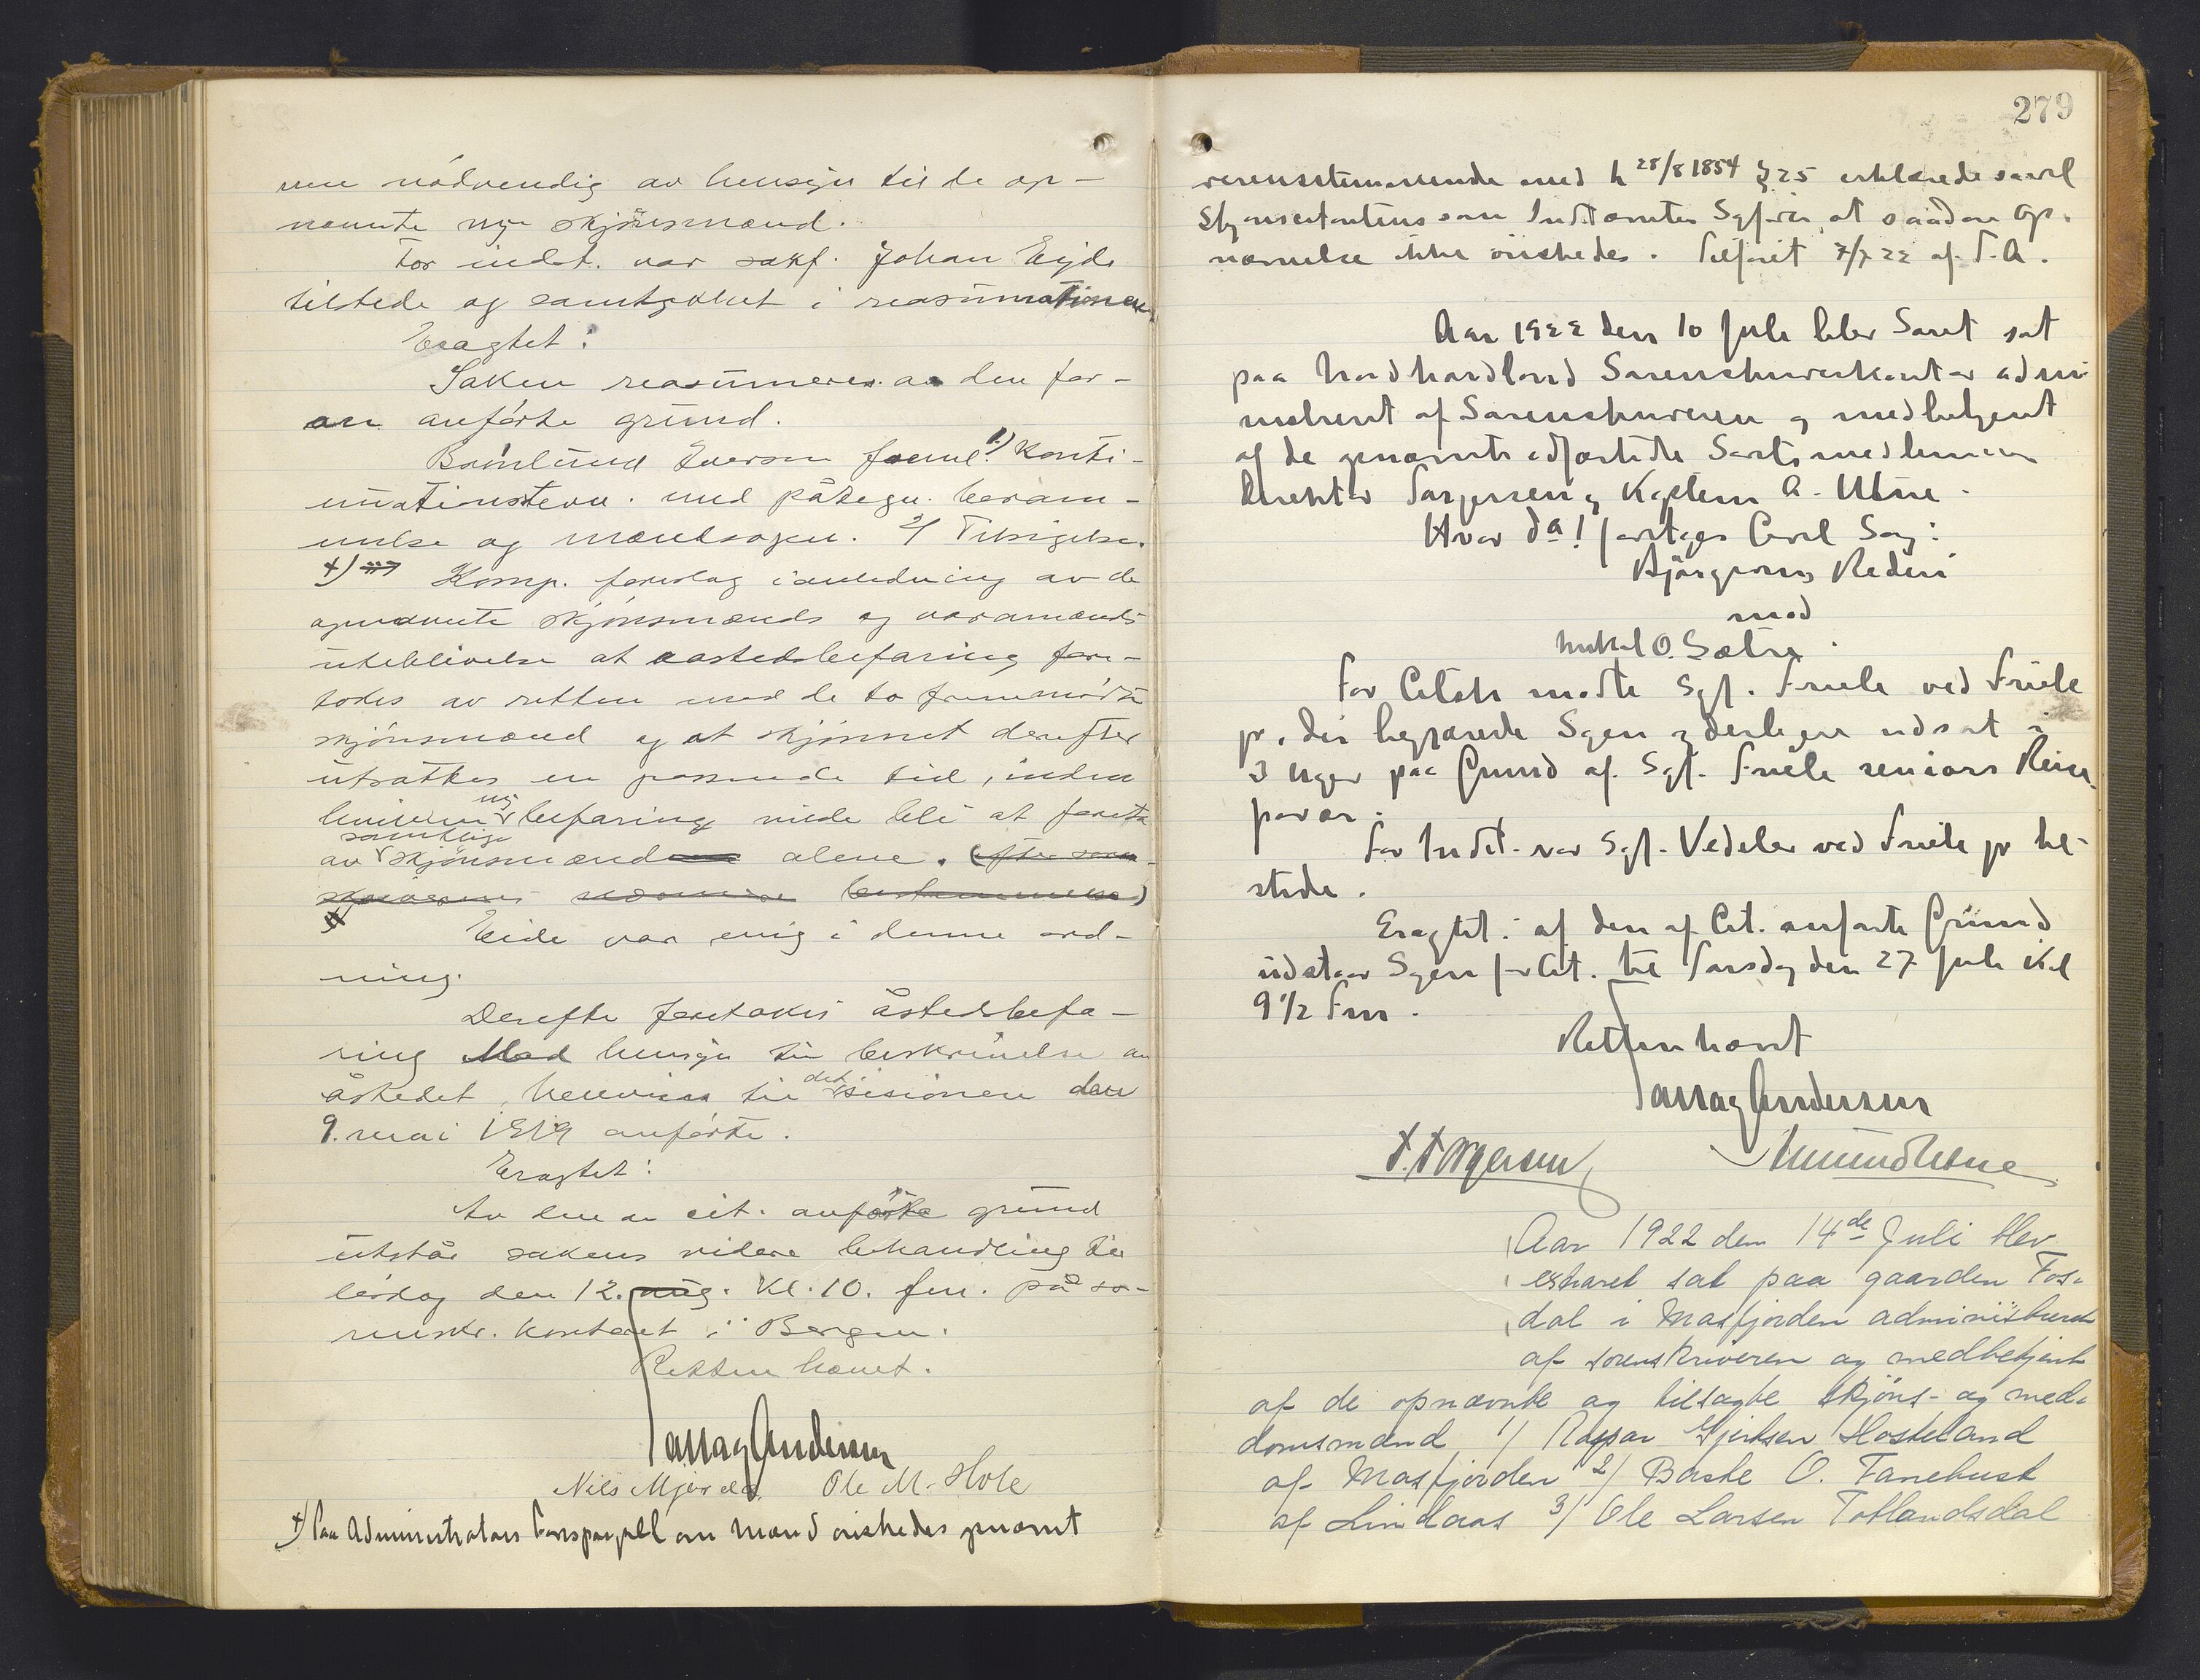 me nödvendig av hensyn til de op-
nevnte nye skjönsmænd.
For indst. var sakf. Johan Eide
tilstede og samtykket i reasumationen
Eragtet:
Saken reasumeres av den for-
an anförte grund.
Iversen freml. 1) konti-
nuationstevn. med påtegn. beram-
melse og mæntsopn. 2/ Tilsigelse.
+) Komp. foreslog i anledning av de
opnævnte skjönsmænds og varamænds
uteblivelse at aastedsbefaring fore-
toges av retten med de to fremmödte
skjönsmænd og at skjönnet derefter
utsættes en passende tid, inden
hvilken ny befaring vilde bli at foreta
av samtlige skjönsmænd alene. (efter sorenskriverens nærmere bestemmelse)
Eide var enig i denne ord-
ning.
Derefter foretokes åstedsbefa-
ring Med hensyn til beskrivelse av
åstedet henvises til det i sesionen den
9. mai 1919 anförte.
Eragtet:
Av den av cit. anförte grund
utstår sakens videre behandling til
lördag den 12. aug. Kl. 10. fm. på so-
renskr. kontoret i Bergen.
Retten hævet.
Nils Mjös Ole M. Hole
+) Paa Administrators Forespørgsel om Mænd ønskedes opnævnt
279
overensstemmende med L 28/8 1854 § 25 erklærede saavel
Skjønscitanten som Indstævntes Sagfører, at saadan Op-
nævnelse ikke ønskedes. Tilføiet 7/7 22 af T.A.
Aar 1922 den 10 Juli blev Søret sat
paa Nordhordland Sorenskriverkontor admi-
nistreret af Sorenskriveren og medbetjent
af de opnævnte edfæstede Søretsmedlemmer
Direktør Torgersen og Kaptein A. Utne.
Hvor da! foretages Civil Sag:
Bjørgvins Rederi
mod
Mikkel O. Sætre.
For Citstr mødte Sgf. Friele ved Friele
jr, der begjærede Sagen yderligere udsat i
3 Uger paa Grund af Sgf. Friele seniors Reise-
fravær.
For Indst. var Sgf. Vedeler ved Friele jr til-
stede.
Eragtet: af den af Cit. anførte Grund
udstaar Sagen for Cit. til Torsdag den 27 Juli Kl
9 1/2 Fm.
Retten hævet
T. Torgersen Amund Utne
Aar 1922 den 14de Juli blev
extraret sat paa gaarden Fos-
dal i Masfjorden administreret
af sorenskriveren og medbetjent
af de opnævnte og tilsagte skjöns- og med-
domsmænd 1/ Raspar Gjertsen Hosteland
af Masfjorden 2/ Baste O. Fanebust
af Lindaas 3/ Ole Larsen Totlandsdal